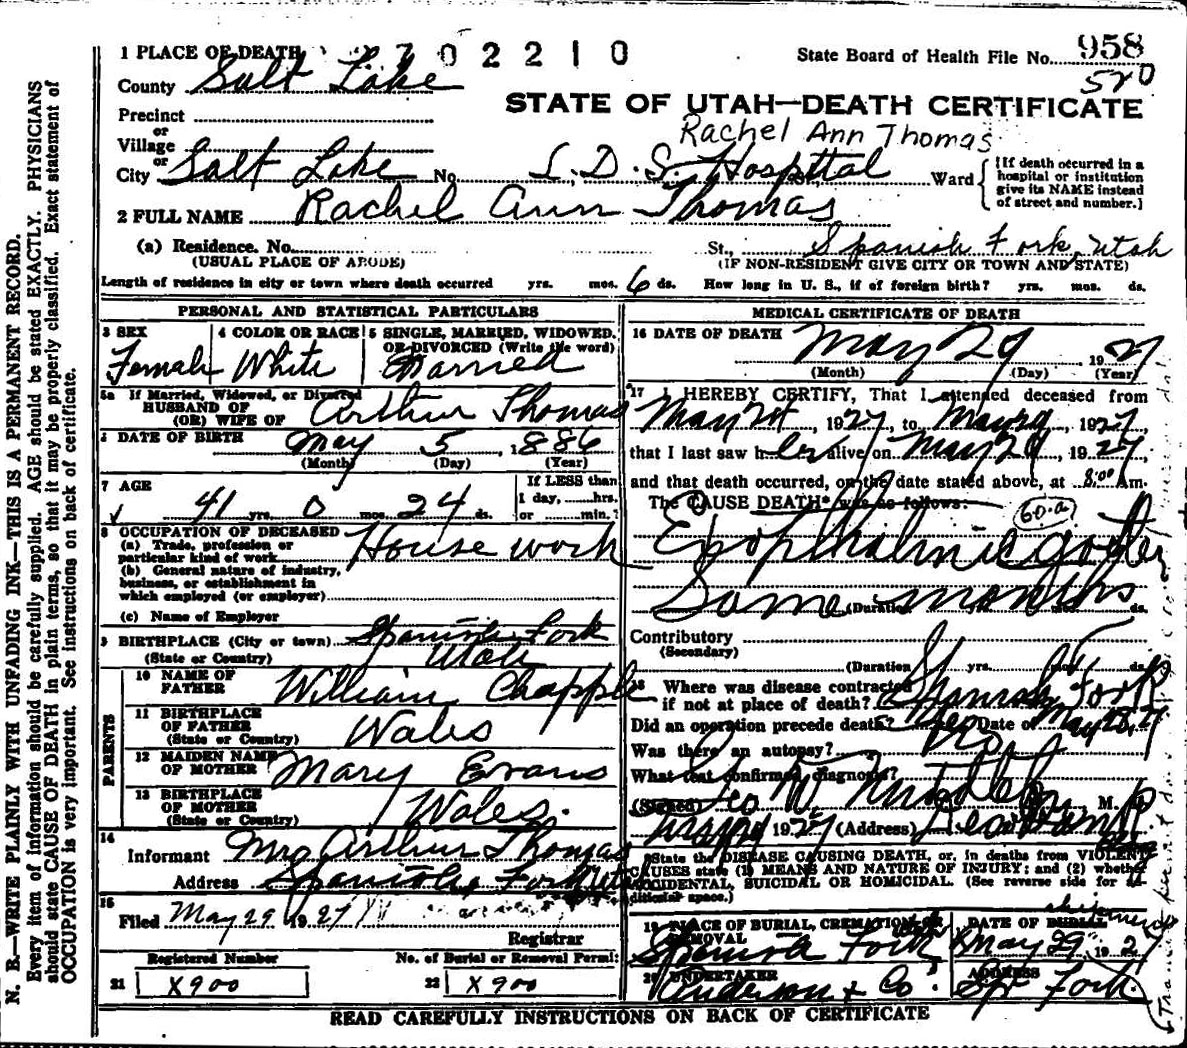 1 PLACE OF DEATH 2 7 0 2 2 1 0 State Board of Health File No. 958
County Salt Lake 520
STATE OF UTAH—DEATH CERTIFICATE
Precinct
or
Village Rachel Ann Thomas
or
City Salt Lake No. L. D. S. Hospital Ward
[If death occurred in a
hospital or institution
give its NAME instead
of street and number.]
2 FULL NAME Rachel Ann Thomas
(a) Residence. No. St., Spanish Fork, Utah
(USUAL PLACE OF ABODE) (IF NON-RESIDENT GIVE CITY OR TOWN AND STATE)
Length of residence in city or town where death occurred yrs. mos. 6 ds. How long in U. S., if of foreign birth? yrs. mos. ds.
PERSONAL AND STATISTICAL PARTICULARS
3 SEX
Female
4 COLOR OR RACE
White
5 SINGLE, MARRIED, WIDOWED,
OR DIVORCED (Write the word)
Married
5a If Married, Widowed, or Divorced
HUSBAND OF
(OR) WIFE OF Arthur Thomas
DATE OF BIRTH May 5, 1886
(Month) (Day) (Year)
7 AGE
41 yrs. 0 mos. 24 ds.
If LESS than
1 day, ......hrs.
or ......min.?
8 OCCUPATION OF DECEASED
(a) Trade, profession or
particular kind of work House work
(b) General nature of industry,
business, or establishment in
which employed (or employer)
(c) Name of Employer
9 BIRTHPLACE (City or town) Spanish Fork
(State or Country) Utah
PARENTS
10 NAME OF
FATHER William Chapple
11 BIRTHPLACE
OF FATHER
(State or Country) Wales
12 MAIDEN NAME
OF MOTHER Mary Evans
13 BIRTHPLACE
OF MOTHER
(State or Country) Wales.
14
Informant Mrs Arthur Thomas
Address Spanish Fork Utah
15
Filed May 29 1927
Registrar
Registered Number No. of Burial or Removal Permit
21 X900 22 X900
MEDICAL CERTIFICATE OF DEATH
16 DATE OF DEATH
May 29 1927
(Month) (Day) (Year)
17 I HEREBY CERTIFY, That I attended deceased from
May 24, 1927, to May 29, 1927
that I last saw her alive on May 29, 1927,
and that death occurred, on the date stated above, at 8:00 Am.
The CAUSE DEATH* was as follows:
60-a
Exopthalmic goiter
Some months
(Duration ds.
Contributory
(Secondary)
(Duration yrs. mos. ds.
18 Where was disease contracted
if not at place of death? Spanish Fork
Did an operation precede death? Date of May 28, 27
Was there an autopsy? No
What test confirmed diagnosis?
(Signed) Geo W. M. D.
1927 (Address)
*State the DISEASE CAUSING DEATH, or, in deaths from VIOLENT
CAUSES state (1) MEANS AND NATURE OF INJURY; and (2) whether
ACCIDENTAL, SUICIDAL OR HOMICIDAL. (See reverse side for ad-
ditional space.)
19 PLACE OF BURIAL, CREMATION OR
REMOVAL
Spanish Fork
DATE OF BURIAL
May 29, 1927
20 UNDERTAKER
Anderson + Co.
ADDRESS
Sp. Fork.
READ CAREFULLY INSTRUCTIONS ON BACK OF CERTIFICATE
N. B.—WRITE PLAINLY WITH UNFADING INK—THIS IS A PERMANENT RECORD.
Every item of information should be carefully supplied. AGE should be stated EXACTLY. PHYSICIANS
should state CAUSE OF DEATH in plain terms, so that it may be properly classified. Exact statement of
OCCUPATION is very important. See instructions on back of certificate.